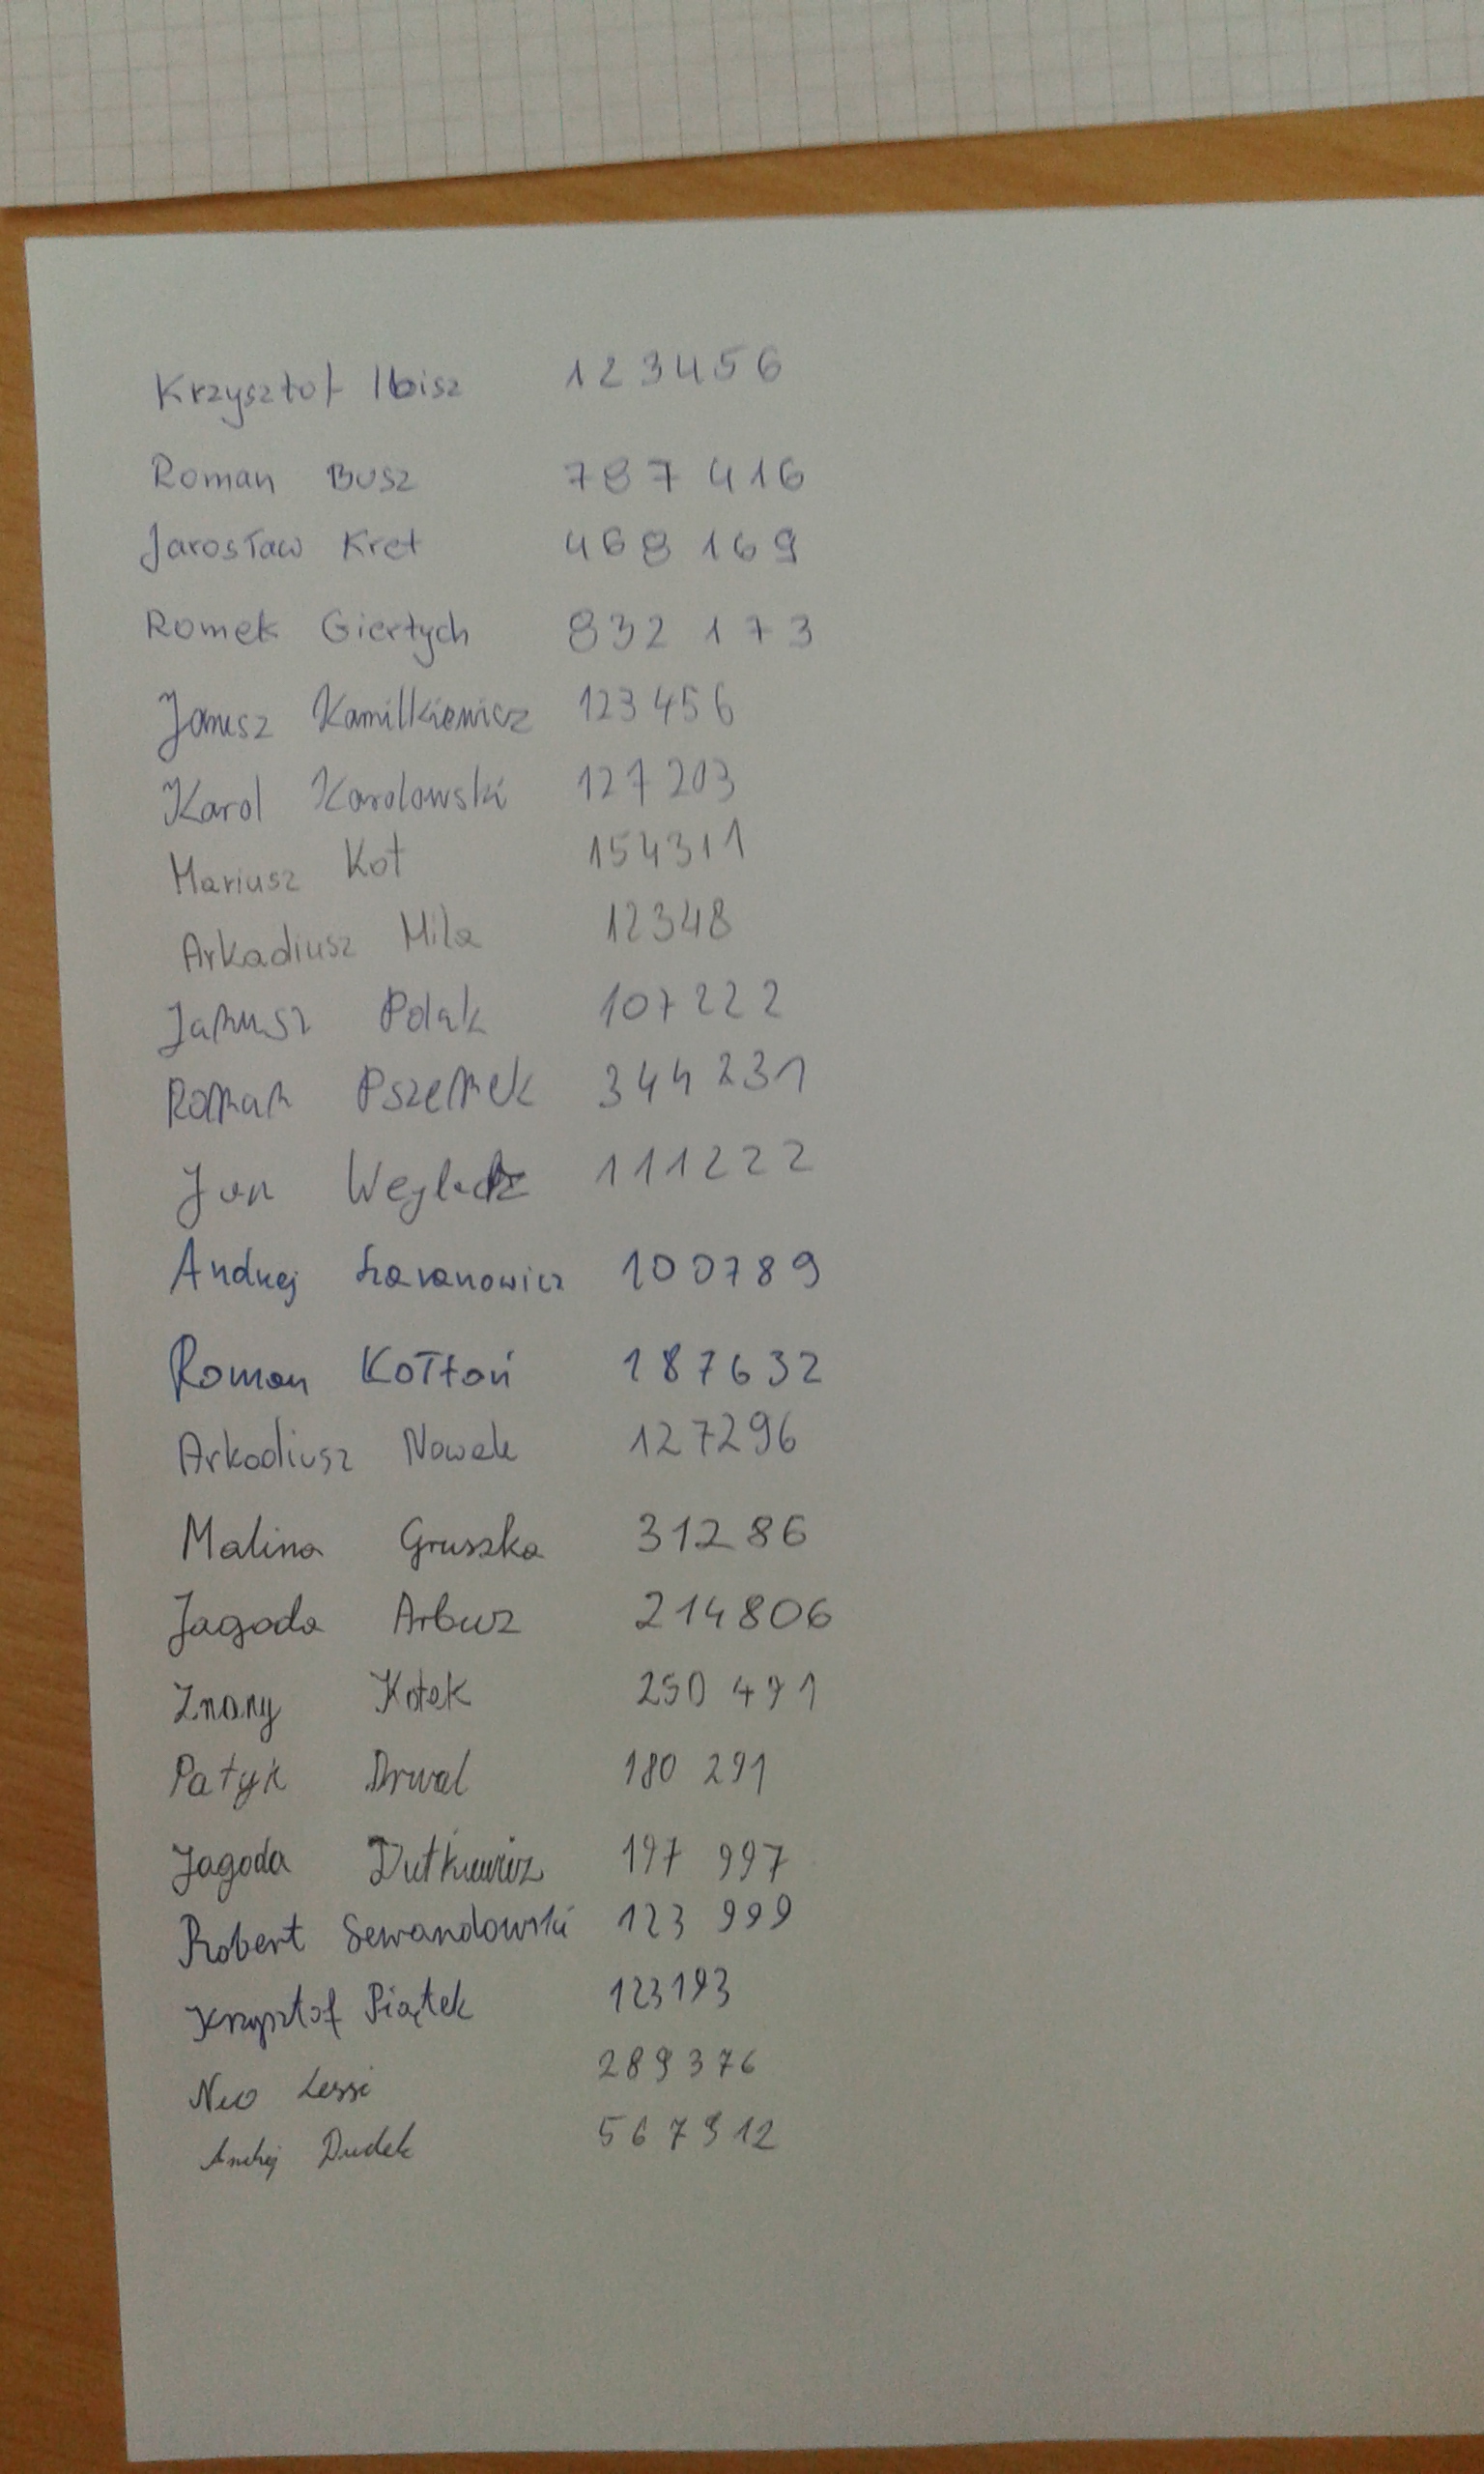 Krzysztof Ibisz 123456
Roman Busz 787416
Jarosław Kret 468 169
Romek Giertych 832 173
Janusz Kamilkiewicz 123456
Karol Karolowski 127203
Mariusz Kot 154311
Arkadiusz Mila 12348
Janusz Polak 107222
Roman Pszemek 344231
Jan 111222
Andrzej Szaranowicz 100789
Roman Kołtoń 187632
Arkadiusz Nowak 127296
Malina Gruszka 31286
Jagoda Arbuz 214806
Znany Kotek 250 491
Patyk Drwal 180 291
Jagoda Dutkiewicz 197 997
Robert Sewandowski 123 999
Krzysztof Piątek 123193
Neo Lessi 289376
Andrzej Dudek 567912